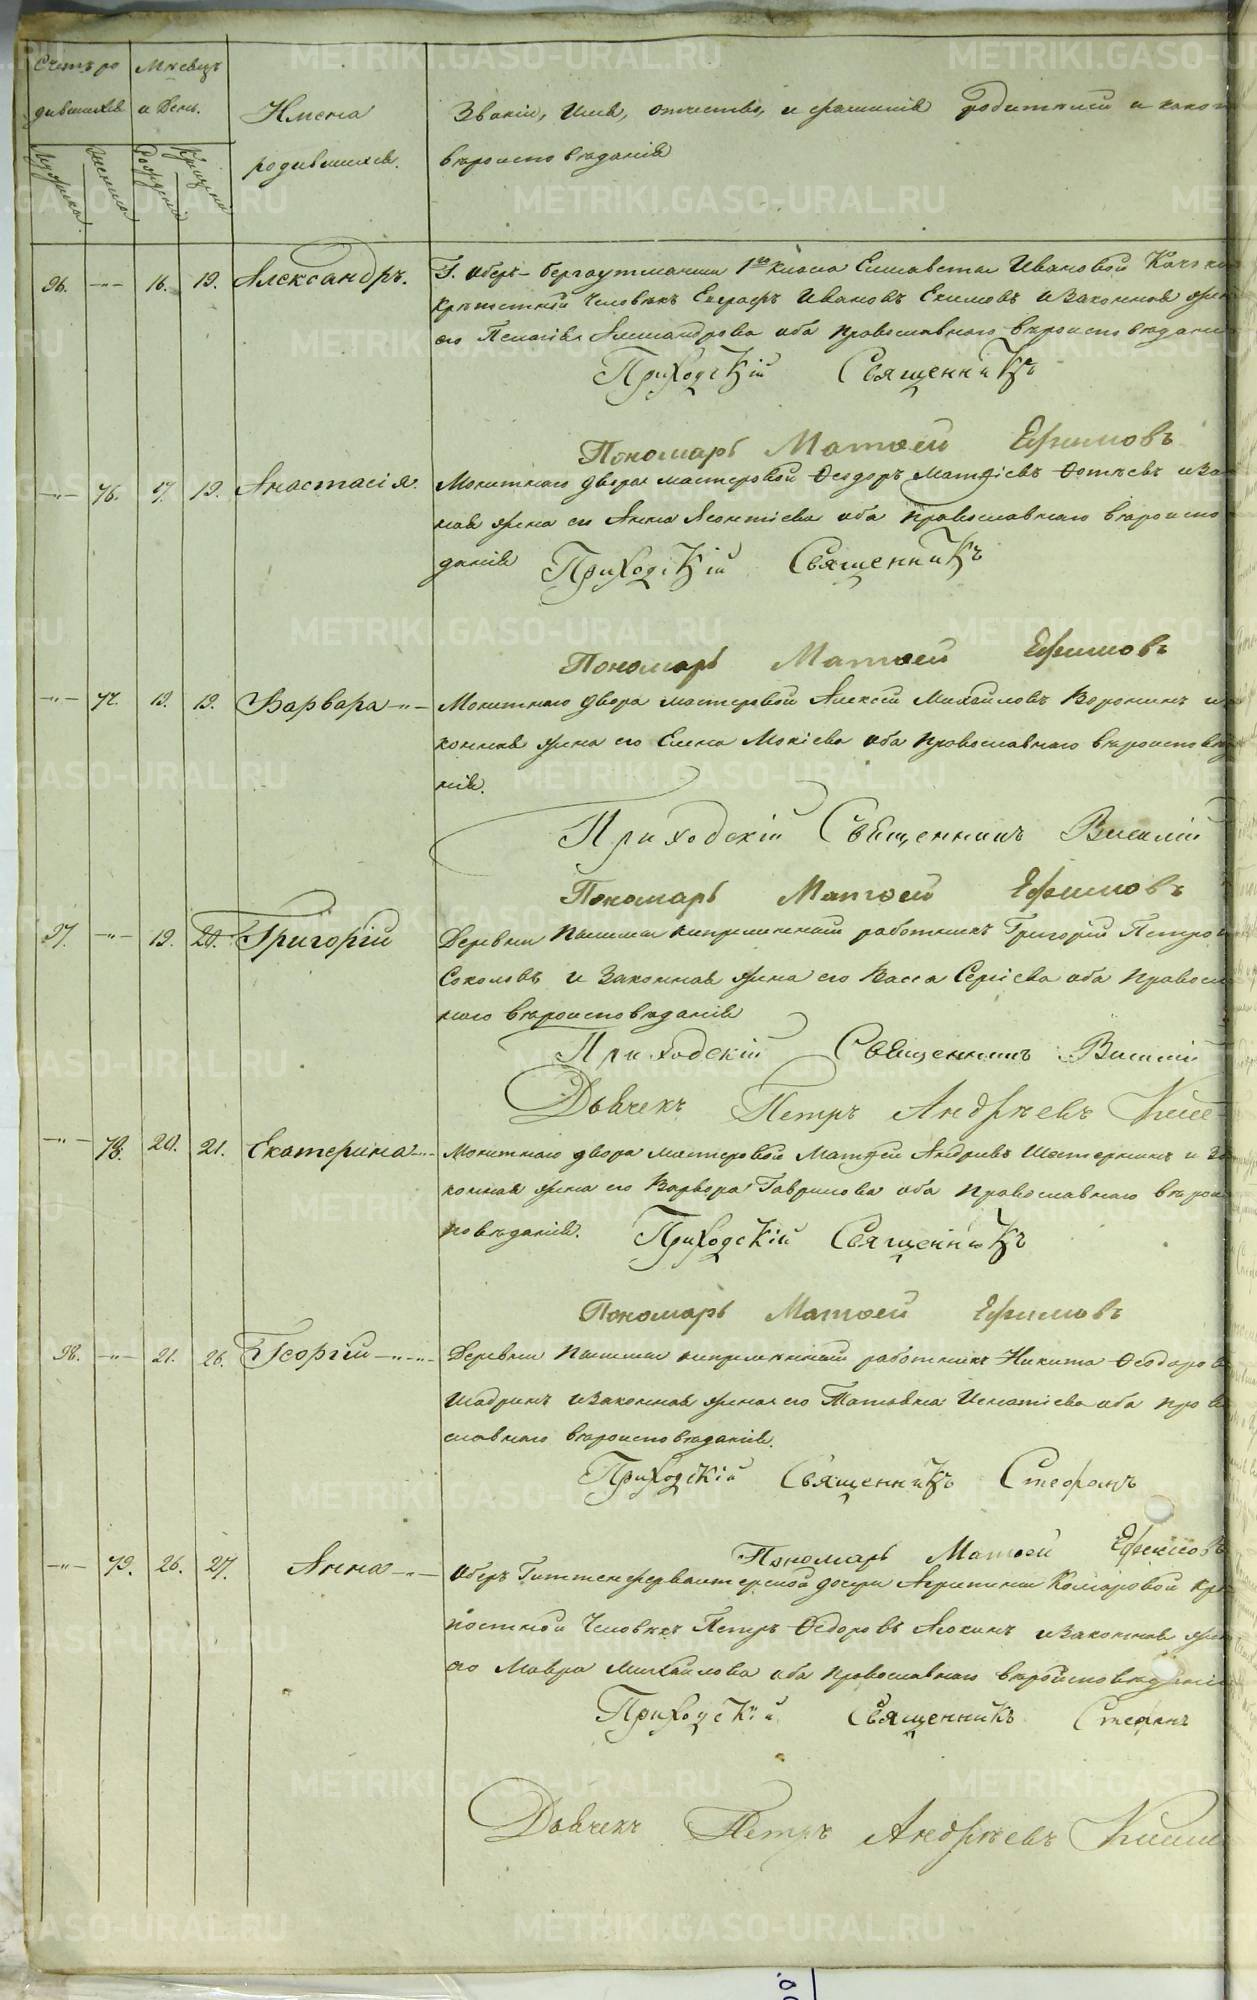 Счетъ ро Мѣсяцъ
дившихся и День.
Имена
родившихся.
Званіе, Имя, отчество, и фамилія родителей и какого
вѣроисповѣданія
Мужска Женска Рожденія Крещенія
96. —"— 16. 19. Александръ.
Г. Оберъ-бергауптманши 1го класа Елисаветы Ивановой
крѣпостной Человѣкъ Евграфъ Ивановъ Екимовъ и законная
его Пелагія Александрова оба православнаго вѣроисповѣданія
Приходскій Священникъ
Пономарь Матѳей Ефимовъ
—"— 76. 17. 19. Анастасія.
Монетнаго двора мастеровой Ѳедоръ Матѳіевъ и За
ная жена его Анна Леонтіева оба православнаго вѣроиспо
данія Приходскій Священникъ
Пономарь Матѳей Ефимовъ
—"— 77. 19. 19. Варвара —"—
Монетнаго двора мастеровой Алексѣй Михайловъ Воронинъ и
конная жена его Елена Мокіева оба православнаго вѣроисповѣда
нія.
Приходскій Священникъ Василій
Пономарь Матѳей Ефимовъ
97. —"— 19. 20. Григорій
Деревни непремѣнный работникъ Григорій Петровъ
Соколовъ и Законная жена его Васса Сергіева оба Правосла
наго вѣроисповѣданія
Приходскій Священникъ Василій
Дьячекъ Петръ Андрѣевъ
—"— 78. 20. 21. Екатерина —"—
Монетнаго двора мастеровой Матѳей Андріевъ Шестернинъ и За
конная жена его Варвара Гаврилова оба Православнаго вѣроис
повѣданія. Приходскій Священникъ
Пономарь Матѳей Ефимовъ
98. —"— 21. 26. Георгій —"—"—
Деревни непремѣнный работникъ Никита Ѳеодоровъ
Шадринъ и законная жена его Татьяна Игнатіева оба прав
славнаго вѣроисповѣданія.
Приходскій Священникъ Стефанъ
Пономарь Матѳей Ефимовъ
—"— 79. 26. 27. Анна —"—
Оберъ Гиттенфервалтерской дочери Агрипины Комаровой крѣ
постной Человѣкъ Петръ Ѳедоровъ Люкинъ и законная жена
его Мавра Михайлова оба православнаго вѣроисповѣданія
Приходскій Священникъ Стефанъ
Дьячекъ Петръ Андрѣевъ
METRIKI.GASO-URAL.RU